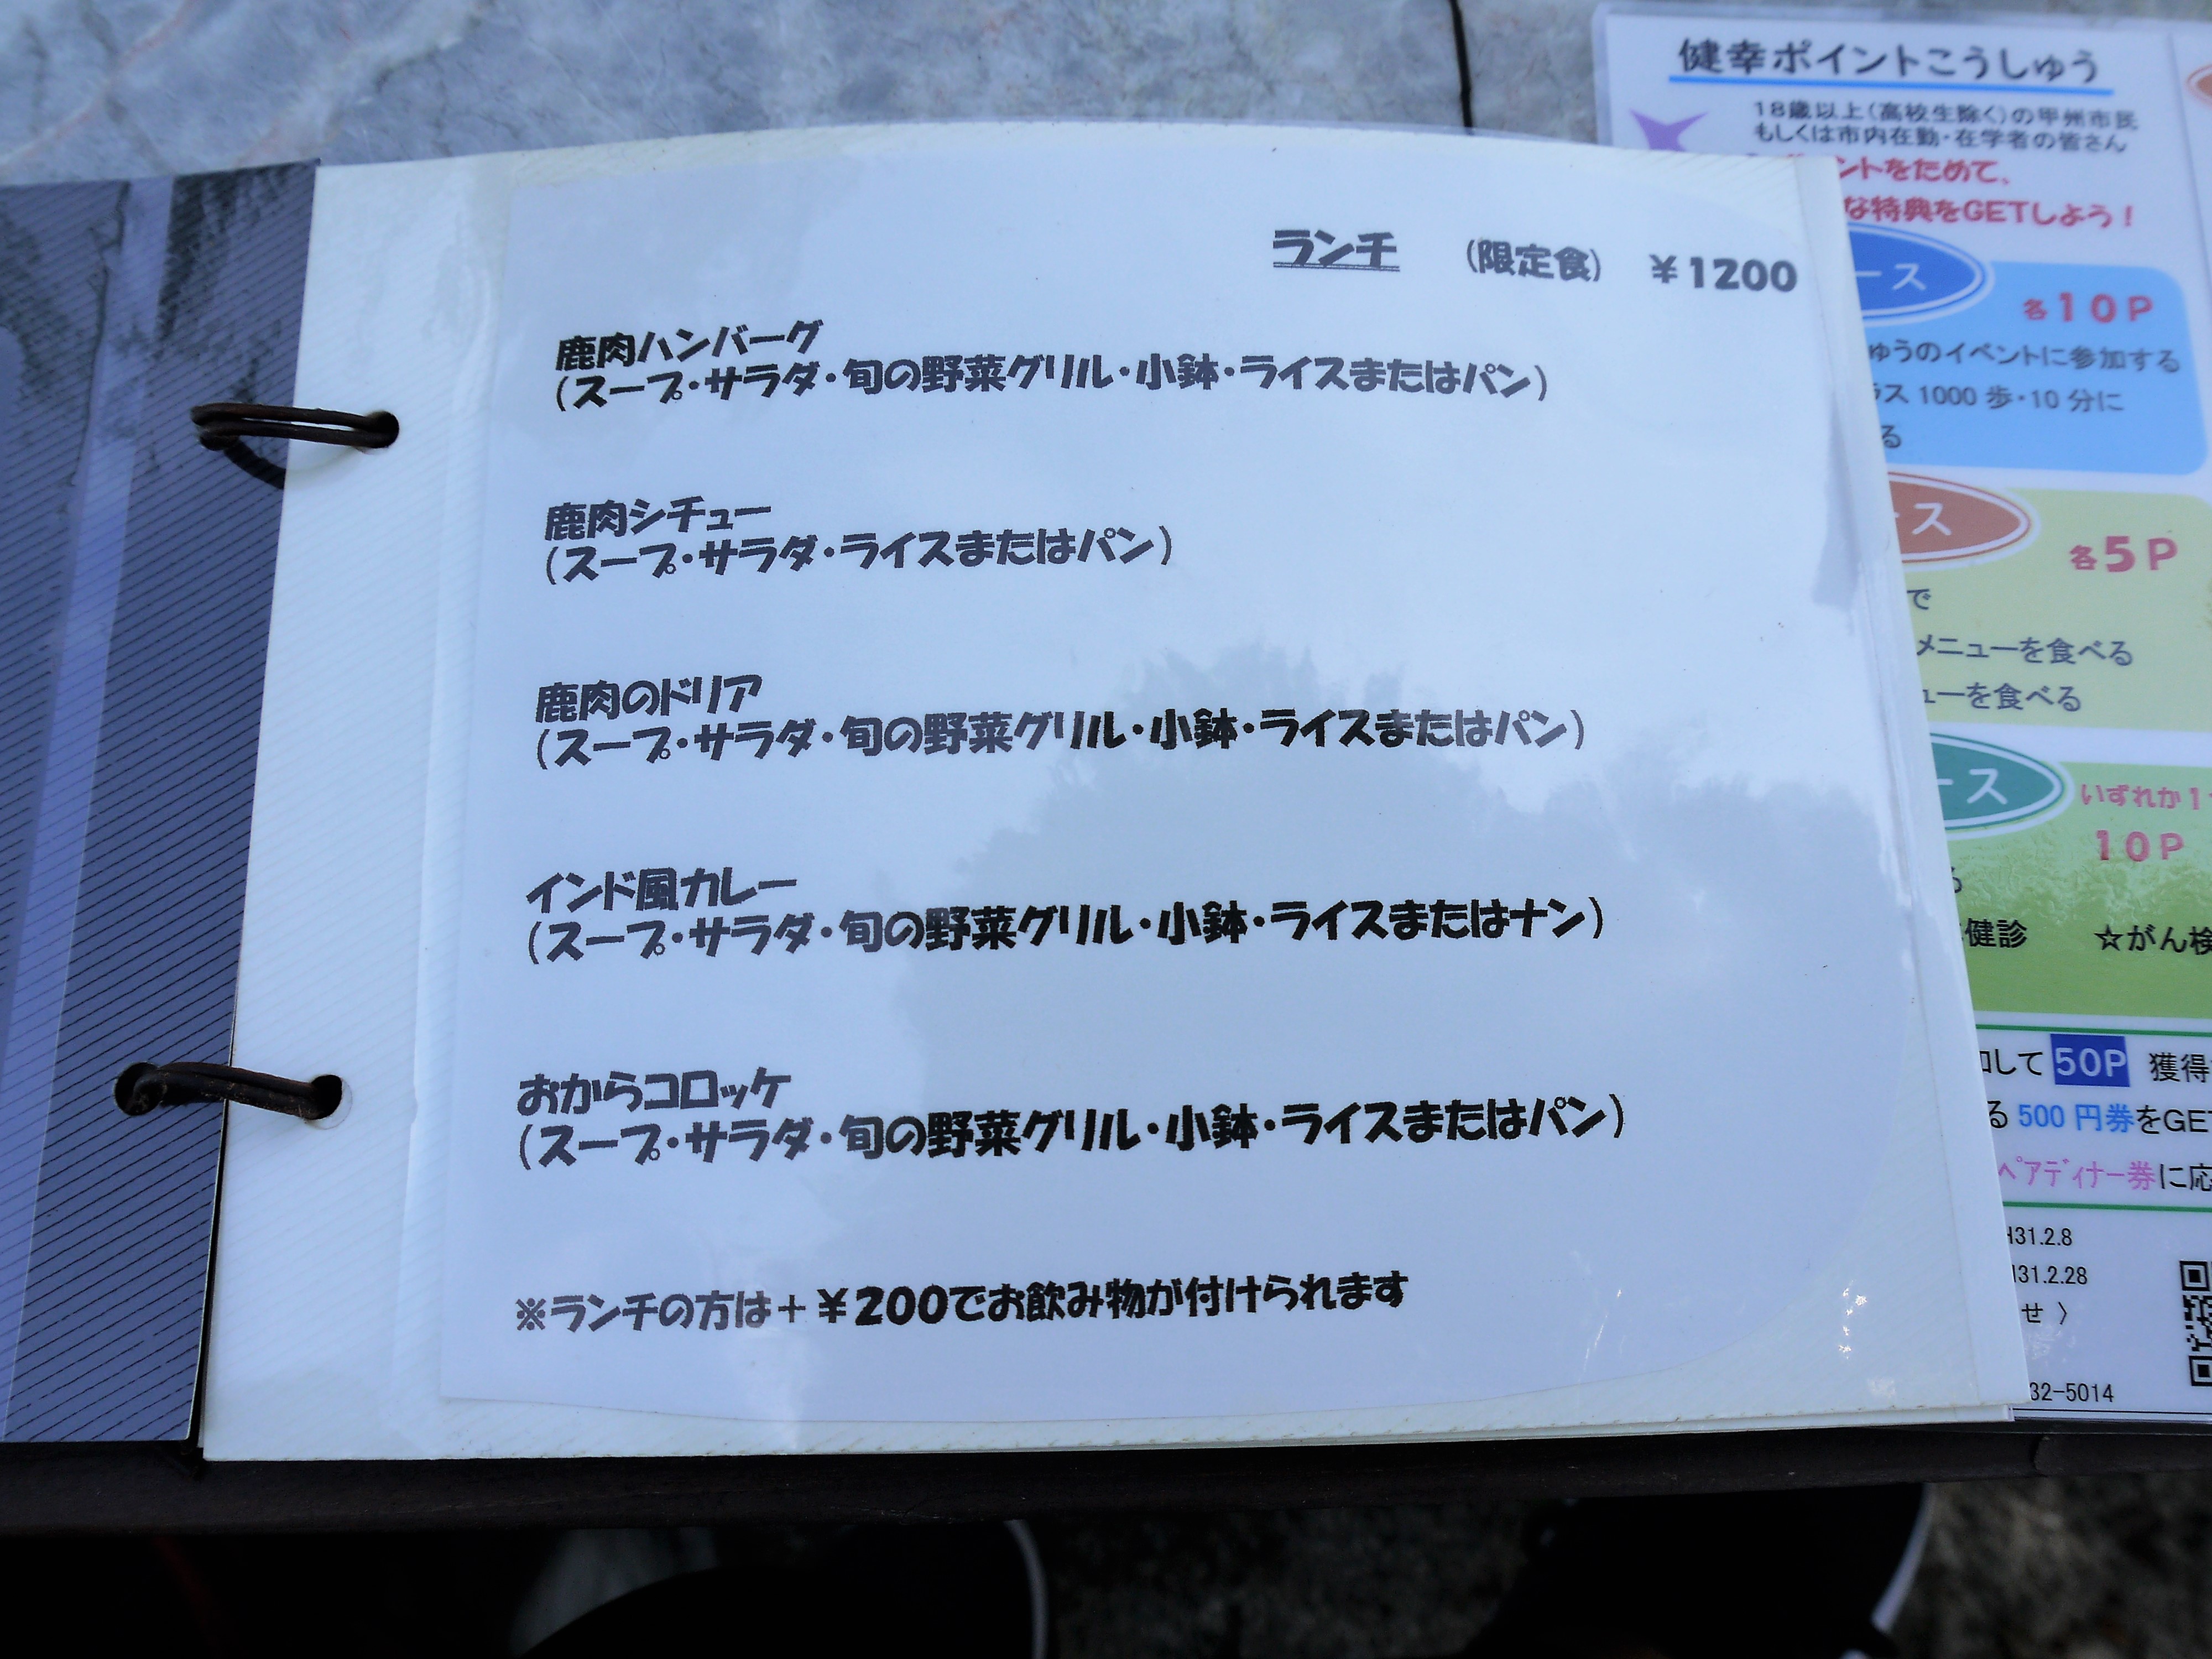 ランチ (限定食) ￥1200
鹿肉ハンバーグ
(スープ・サラダ・旬の野菜グリル・小鉢・ライスまたはパン)
鹿肉シチュー
(スープ・サラダ・ライスまたはパン)
鹿肉のドリア
(スープ・サラダ・旬の野菜グリル・小鉢・ライスまたはパン)
インド風カレー
(スープ・サラダ・旬の野菜グリル・小鉢・ライスまたはナン)
おからコロッケ
(スープ・サラダ・旬の野菜グリル・小鉢・ライスまたはパン)
※ランチの方は＋￥200でお飲み物が付けられます
健幸ポイントこうしゅう
18歳以上(高校生除く)の甲州市民
もしくは市内在勤・在学者の皆さん
ントをためて、
な特典をGETしよう！
ース
各10P
ゅうのイベントに参加する
ラス 1000 歩・10 分に
る
ース
各5P
で
メニューを食べる
ューを食べる
ース
いずれか1
10P
る
健診 ☆がん検
して 50P 獲得
る 500 円券をGE
ペアディナー券に応
H31.2.8
H31.2.28
せ 〉
32-5014